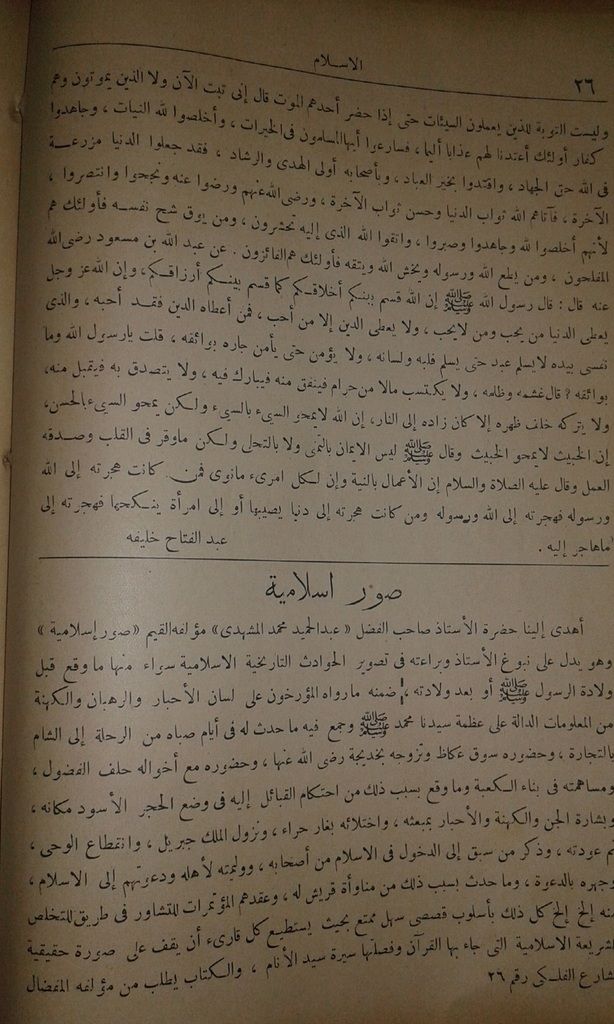 ٢٦
الاسلام
وليست التوبة للذين يعملون السيئات حتى إذا حضر أحدهم الموت قال إنى تبت الآن ولا الذين يموتون وهم
كفار أولئك أعتدنا لهم عذابا أليما ، فسارعوا أيها المسلمون فى الخيرات ، وأخلصوا لله النيات ، وجاهدوا
فى الله حق الجهاد ، واقتدوا بخير العباد ، وبأصحابه أولى الهدى والرشاد ، فقد جعلوا الدنيا مزرعة
الآخرة ، فآتاهم الله ثواب الدنيا وحسن ثواب الآخرة ، ورضى الله عنهم ورضوا عنه ونجحوا وانتصروا ،
لأنهم أخلصوا لله وجاهدوا وصبروا ، واتقوا الله الذى إليه تحشرون ، ومن يوق شح نفسه فأولئك هم
المفلحون ، ومن يطع الله ورسوله ويخش الله ويتقه فأولئك هم الفائزون . عن عبد الله بن مسعود رضى الله
عنه قال : قال رسول الله ﷺ إن الله قسم بينكم أخلاقكم كما قسم بينكم أرزاقكم ، وإن الله عز وجل
يعطى الدنيا من يحب ومن لايحب ، ولا يعطى الدين إلا من أحب ، فمن أعطاه الدين فقد أحبه ، والذى
نفسى بيده لايسلم عبد حتى يسلم قلبه ولسانه ، ولا يؤمن حتى يأمن جاره بوائقه ، قلت يارسول الله وما
بوائقه ؟ قال غشمه وظلمه ، ولا يكتسب مالا من حرام فينفق منه فيبارك فيه ، ولا يتصدق به فيتقبل منه،
ولا يتركه خلف ظهره إلا كان زاده إلى النار، إن الله لايمحو السيء بالسيء ولكن يمحو السيء بالحسن،
إن الخبيث لايمحو الخبيث وقال ﷺ ليس الايمان بالتمنى ولا بالتحلى ولكن ماوقر فى القلب وصدقه
العمل وقال عليه الصلاة والسلام إن الأعمال بالنية وإن لكل امرىء مانوى فمن كانت هجرته إلى الله
ورسوله فهجرته إلى الله ورسوله ومن كانت هجرته إلى دنيا يصيبها أو إلى امرأة ينكحها فهجرته إلى
ماهاجر إليه .
عبد الفتاح خليفه
صور اسلامية
أهدى إلينا حضرة الأستاذ صاحب الفضل « عبد الحميد محمد المشهدى » مؤلفه القيم « صور إسلامية »
وهو يدل على نبوغ الأستاذ وبراعته فى تصوير الحوادث التاريخية الاسلامية سواء منها ما وقع قبل
ولادة الرسول ﷺ أو بعد ولادته ، ضمنه مارواه المؤرخون على لسان الأحبار والرهبان والكهنة
من المعلومات الدالة على عظمة سيدنا محمد ﷺ وجمع فيه ما حدث له فى أيام صباه من الرحلة إلى الشام
بالتجارة ، وحضوره سوق عكاظ وتزوجه بخديجة رضى الله عنها ، وحضوره مع أخواله حلف الفضول ،
ومساهمته فى بناء الكعبة وما وقع بسبب ذلك من احتكام القبائل إليه فى وضع الحجر الأسود مكانه ،
وبشارة الجن والكهنة والأحبار بمبعثه ، واختلائه بغار حراء ، ونزول الملك جبريل ، وانقطاع الوحى ،
ثم عودته ، وذكر من سبق إلى الدخول فى الاسلام من أصحابه ، ووليمته لأهله ودعوتهم إلى الاسلام ،
وجهره بالدعوة ، وما حدث بسبب ذلك من مناوأة قريش له ، وعقدهم المؤتمرات للتشاور فى طريق للتخلص
منه إلخ إلخ كل ذلك بأسلوب قصصى سهل ممتع بحيث يستطيع كل قارىء أن يقف على صورة حقيقية
لشريعة الاسلامية التى جاء بها القرآن وفصلتها سيرة سيد الأنام ، والكتاب يطلب من مؤلفه المفضال
شارع الفلكى رقم ٢٦